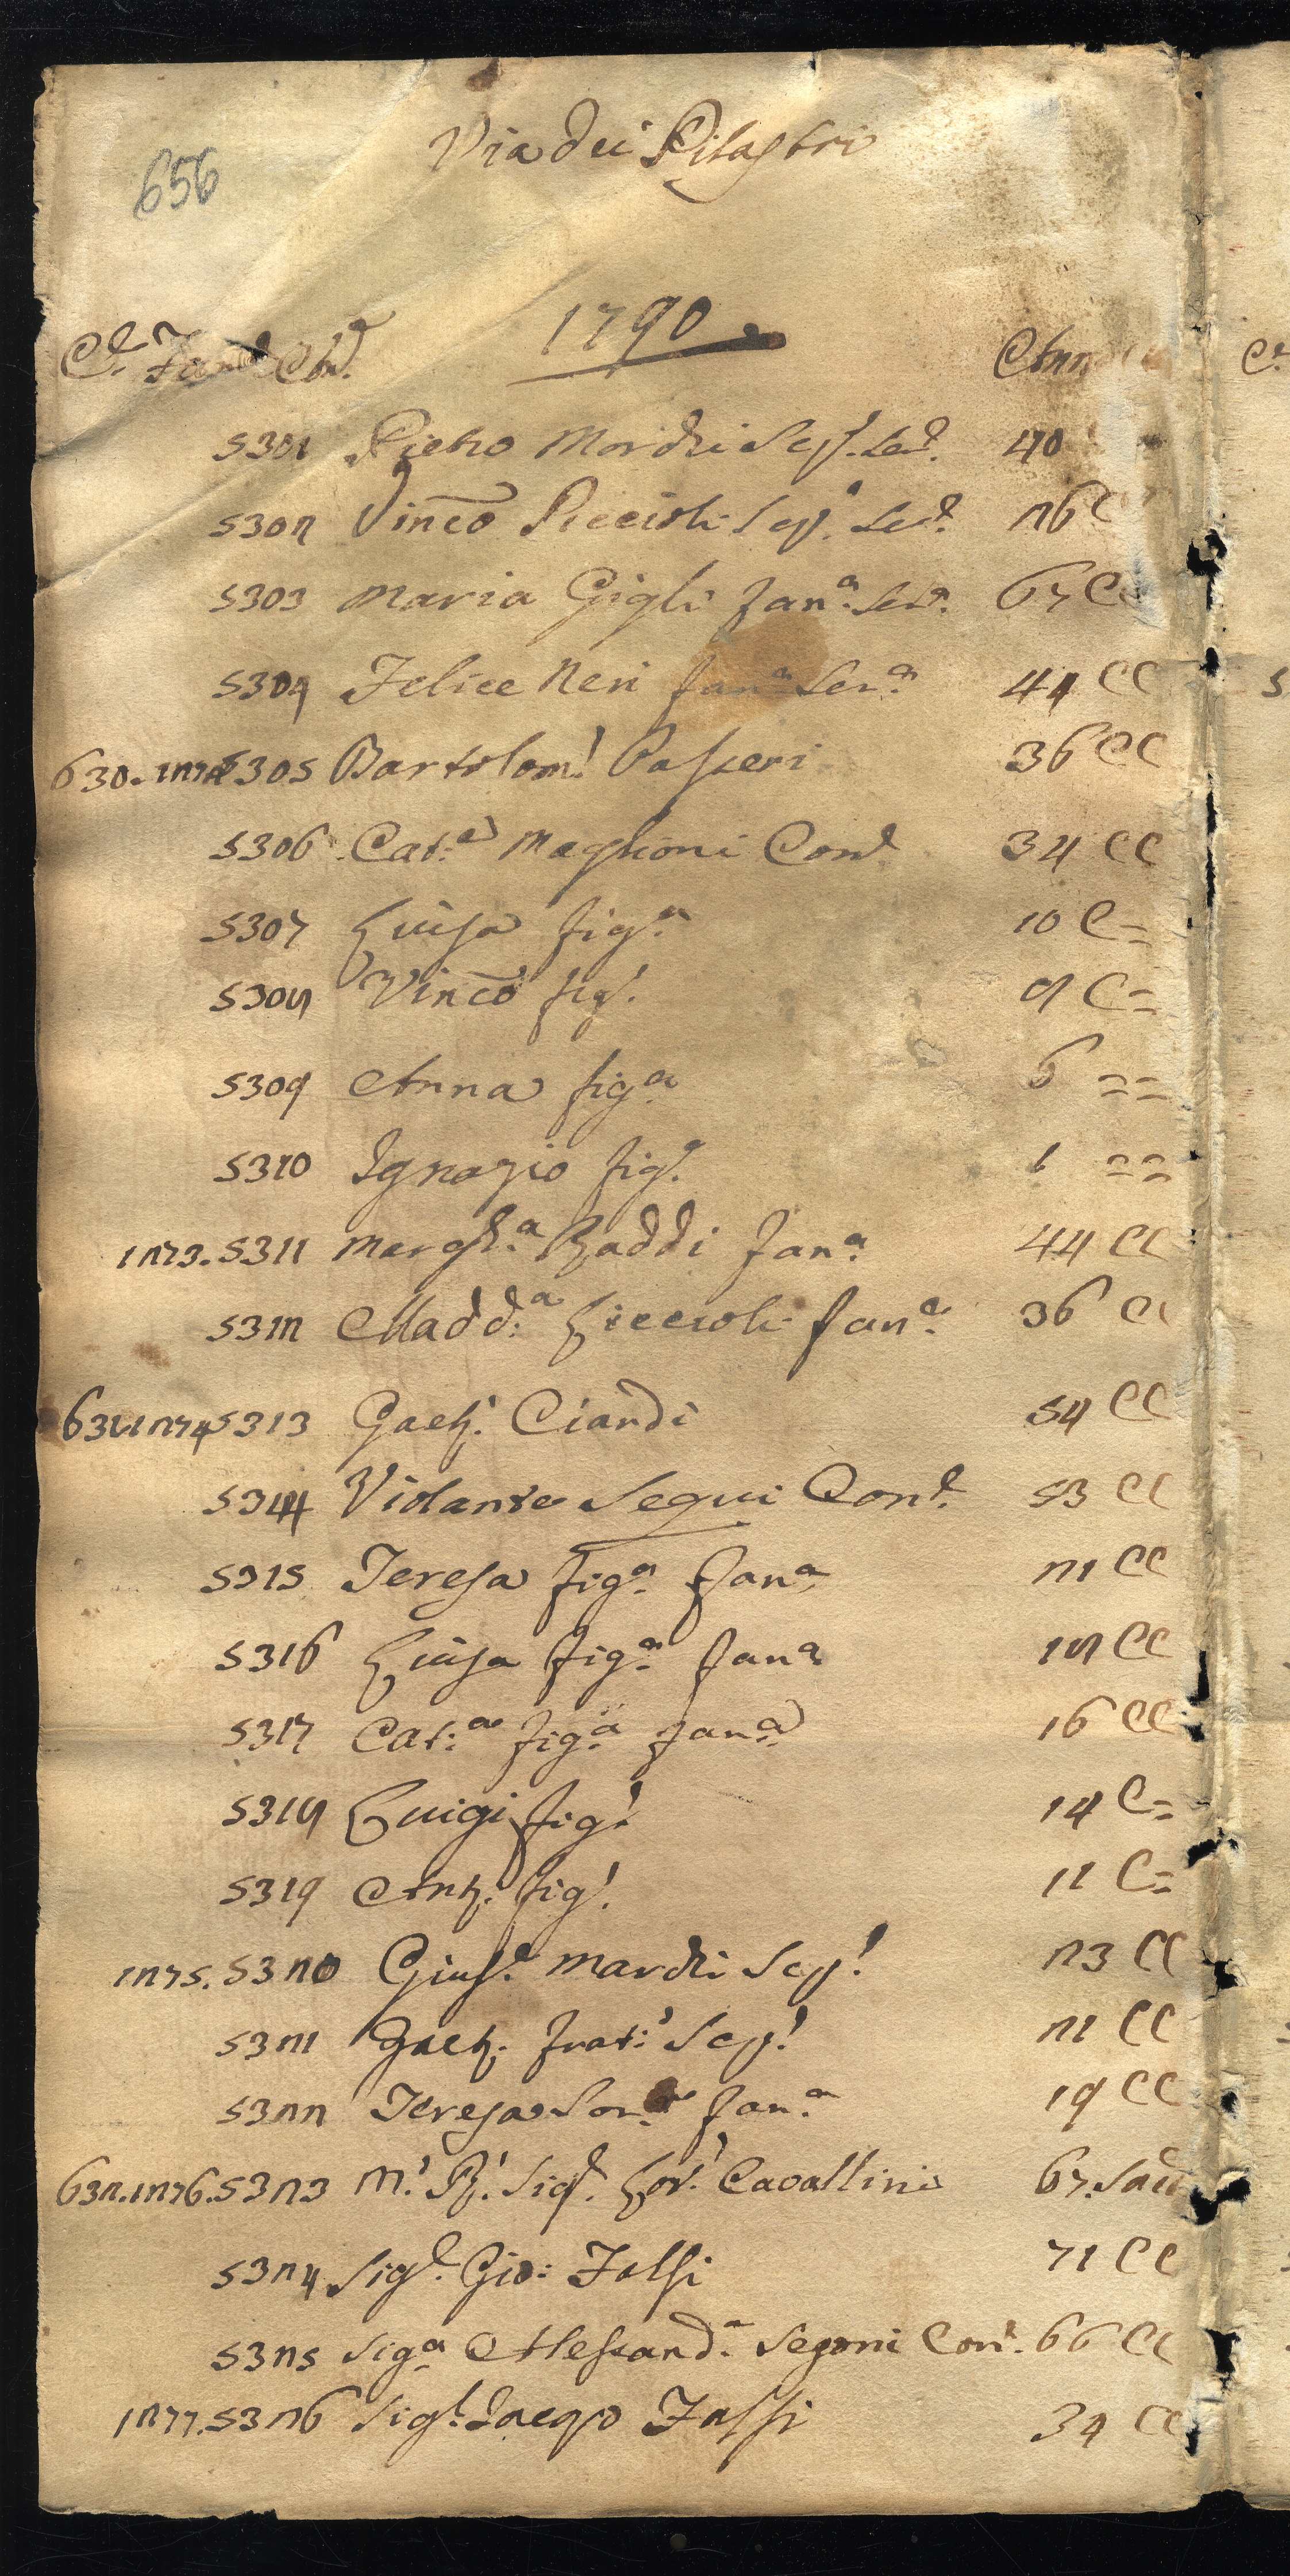 656
Via dei Pilastri
1790
C.e Fam.e Ani.e Anni
5301 Pietro Mordri Scp.o Ser.e 40
5302 Vinc.o Piccioli Scp.o Ser.e 26 C
5303 Maria Gigli fan.a Ser.a 67 CC
5304 Felice Neri fan.a Ser.a 44 CC
630. 1272 5305 Bartolom.o Passeri 36 CC
5306 Cat.a Maglioni Con.e 34 CC
5307 Luisa fig.a 10 C=
5308 Vinc.o fig.o 8 C=
5309 Anna fig.a 6 ==
5310 Ignazio fig.o ==
1273. 5311 Margh.a Raddi fan.a 44 CC
5312 Madd.a Liccioli fan.a 36 CC
631. 1274 5313 Gaet.o Ciardi 54 CC
5314 Violante Segui Con.e 53 CC
5315 Teresa fig.a fan.a 21 CC
5316 Luisa fig.a fan.a 18 CC
5317 Cat.a fig.a fan.a 16 CC
5318 Luigi fig.o 14 C=
5319 Ant.o fig.o 11 C=
1275. 5320 Gius.e Mardri Scp.o 23 CC
5321 Gaet.o frat.o Scp.o 21 CC
5322 Teresa Sor.a fan.a 19 CC
632. 1276. 5323 M.o R.o Sig.e Lor.o Cavallini 67. Sac
5324 Sig.e Gio: Falsi 71 CC
5325 Sig.a Alessand.a Segoni Con.e 66 CC
1277. 5326 Sig.e Jacopo Falsi 34 CC